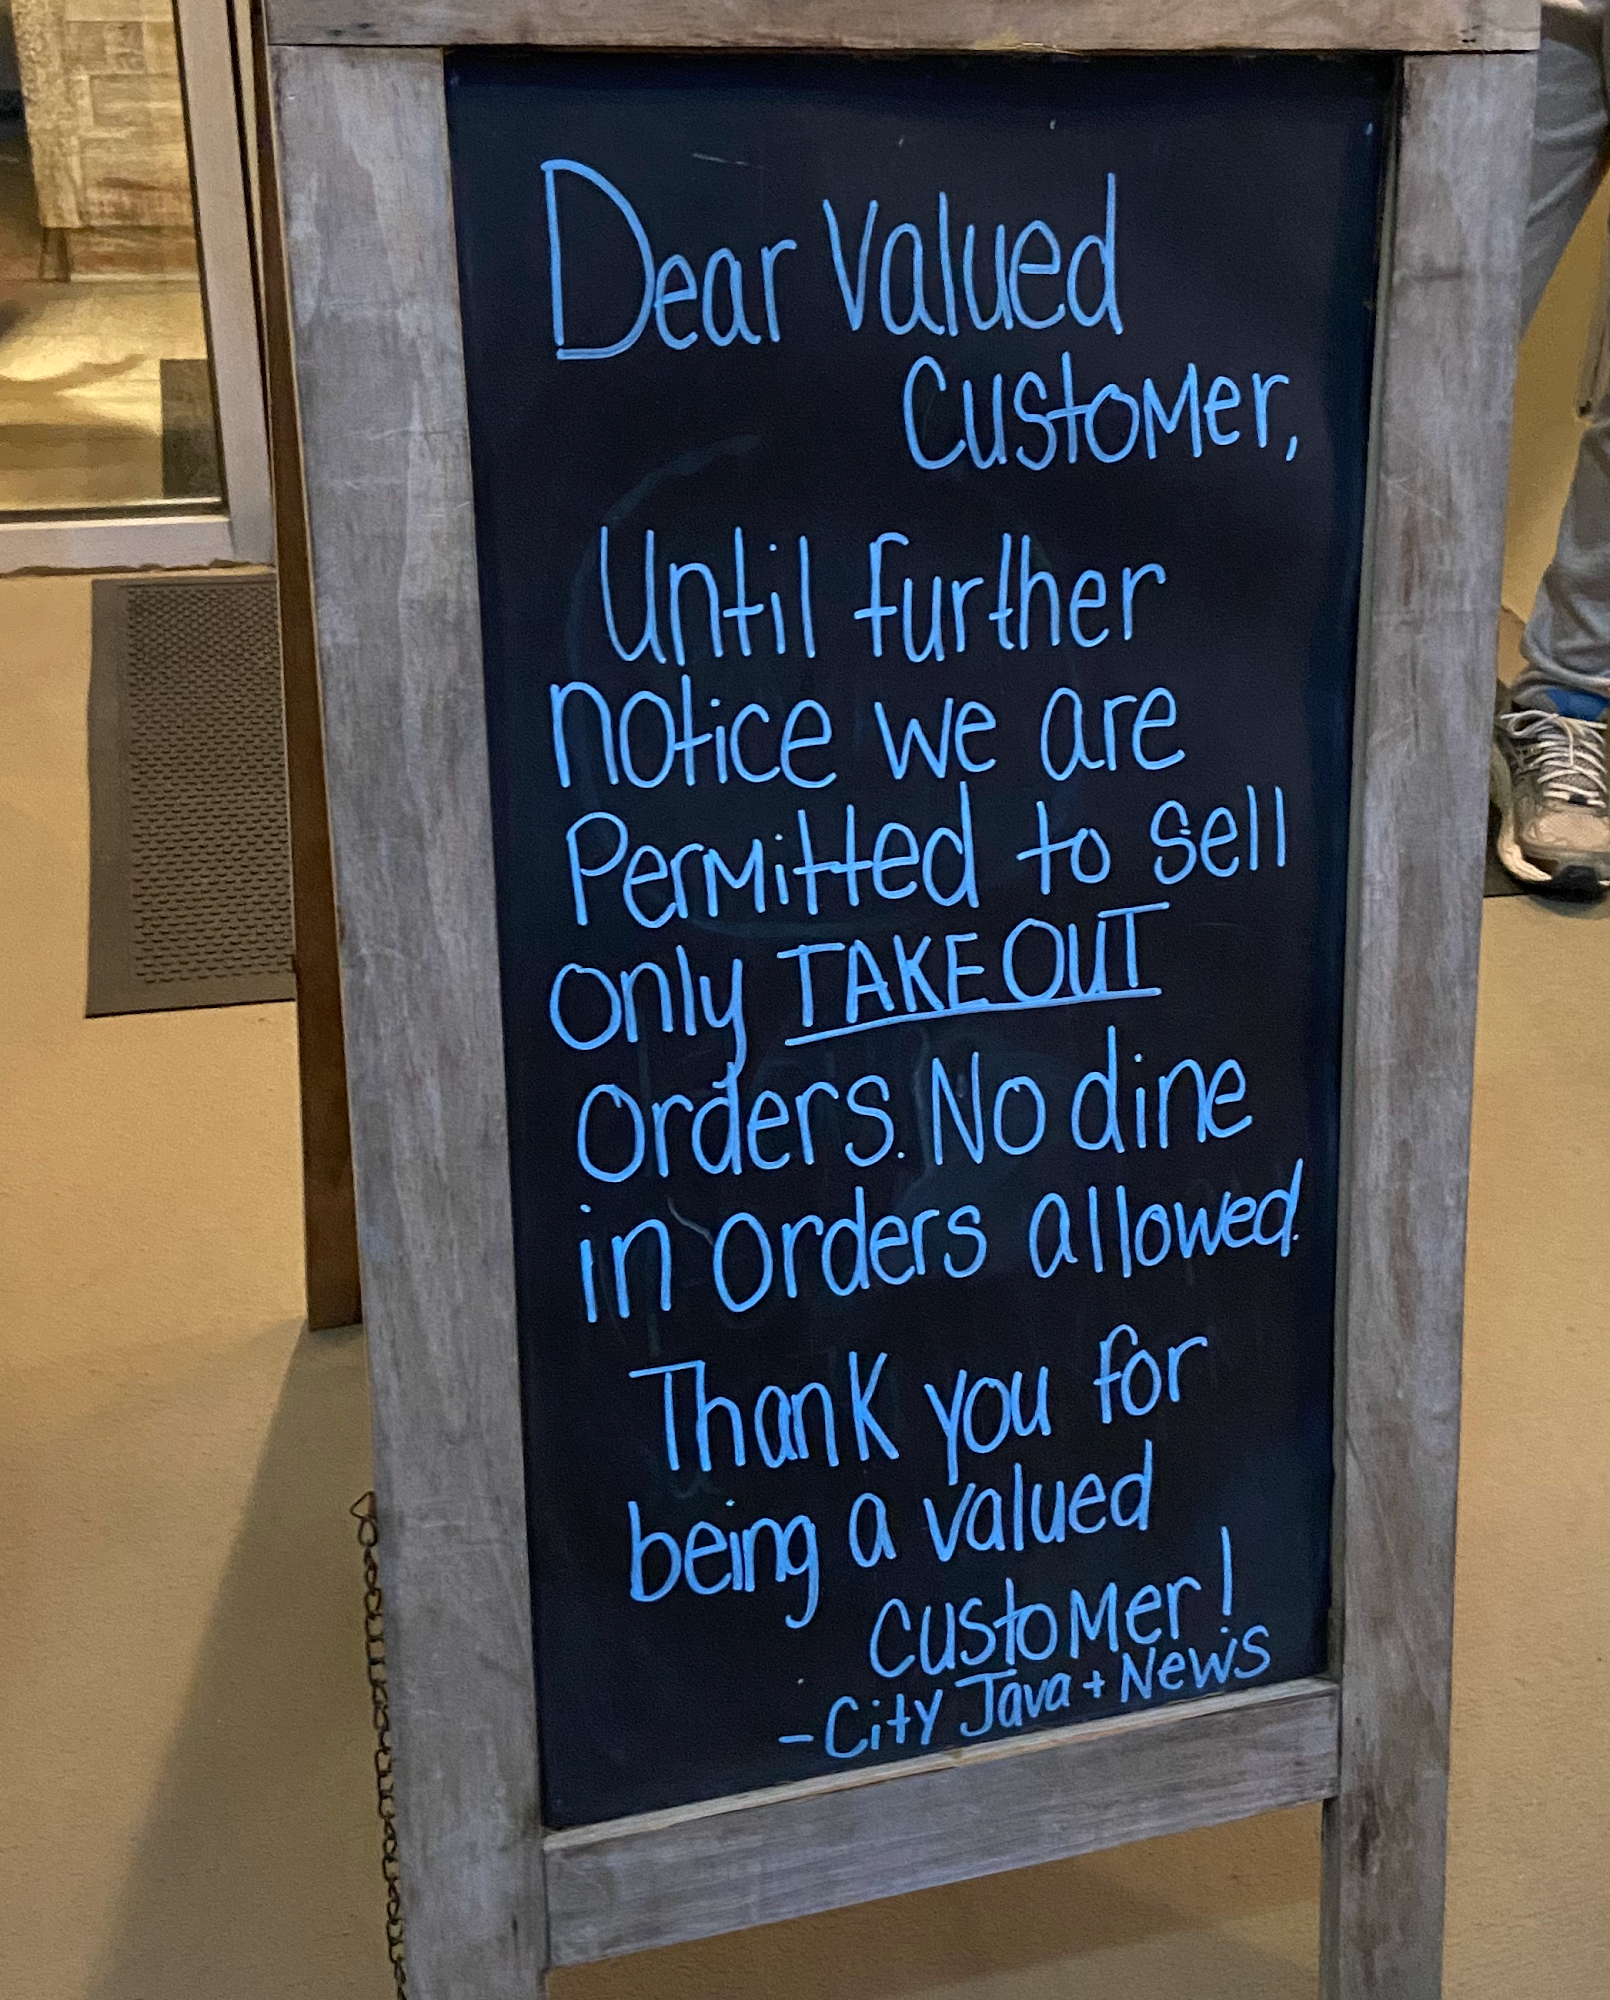 Dear Valued
Customer,
Until further
notice we are
Permitted to sell
only TAKE OUT
Orders. No dine
in orders allowed.
Thank you for
being a valued
customer!
- City Java + News